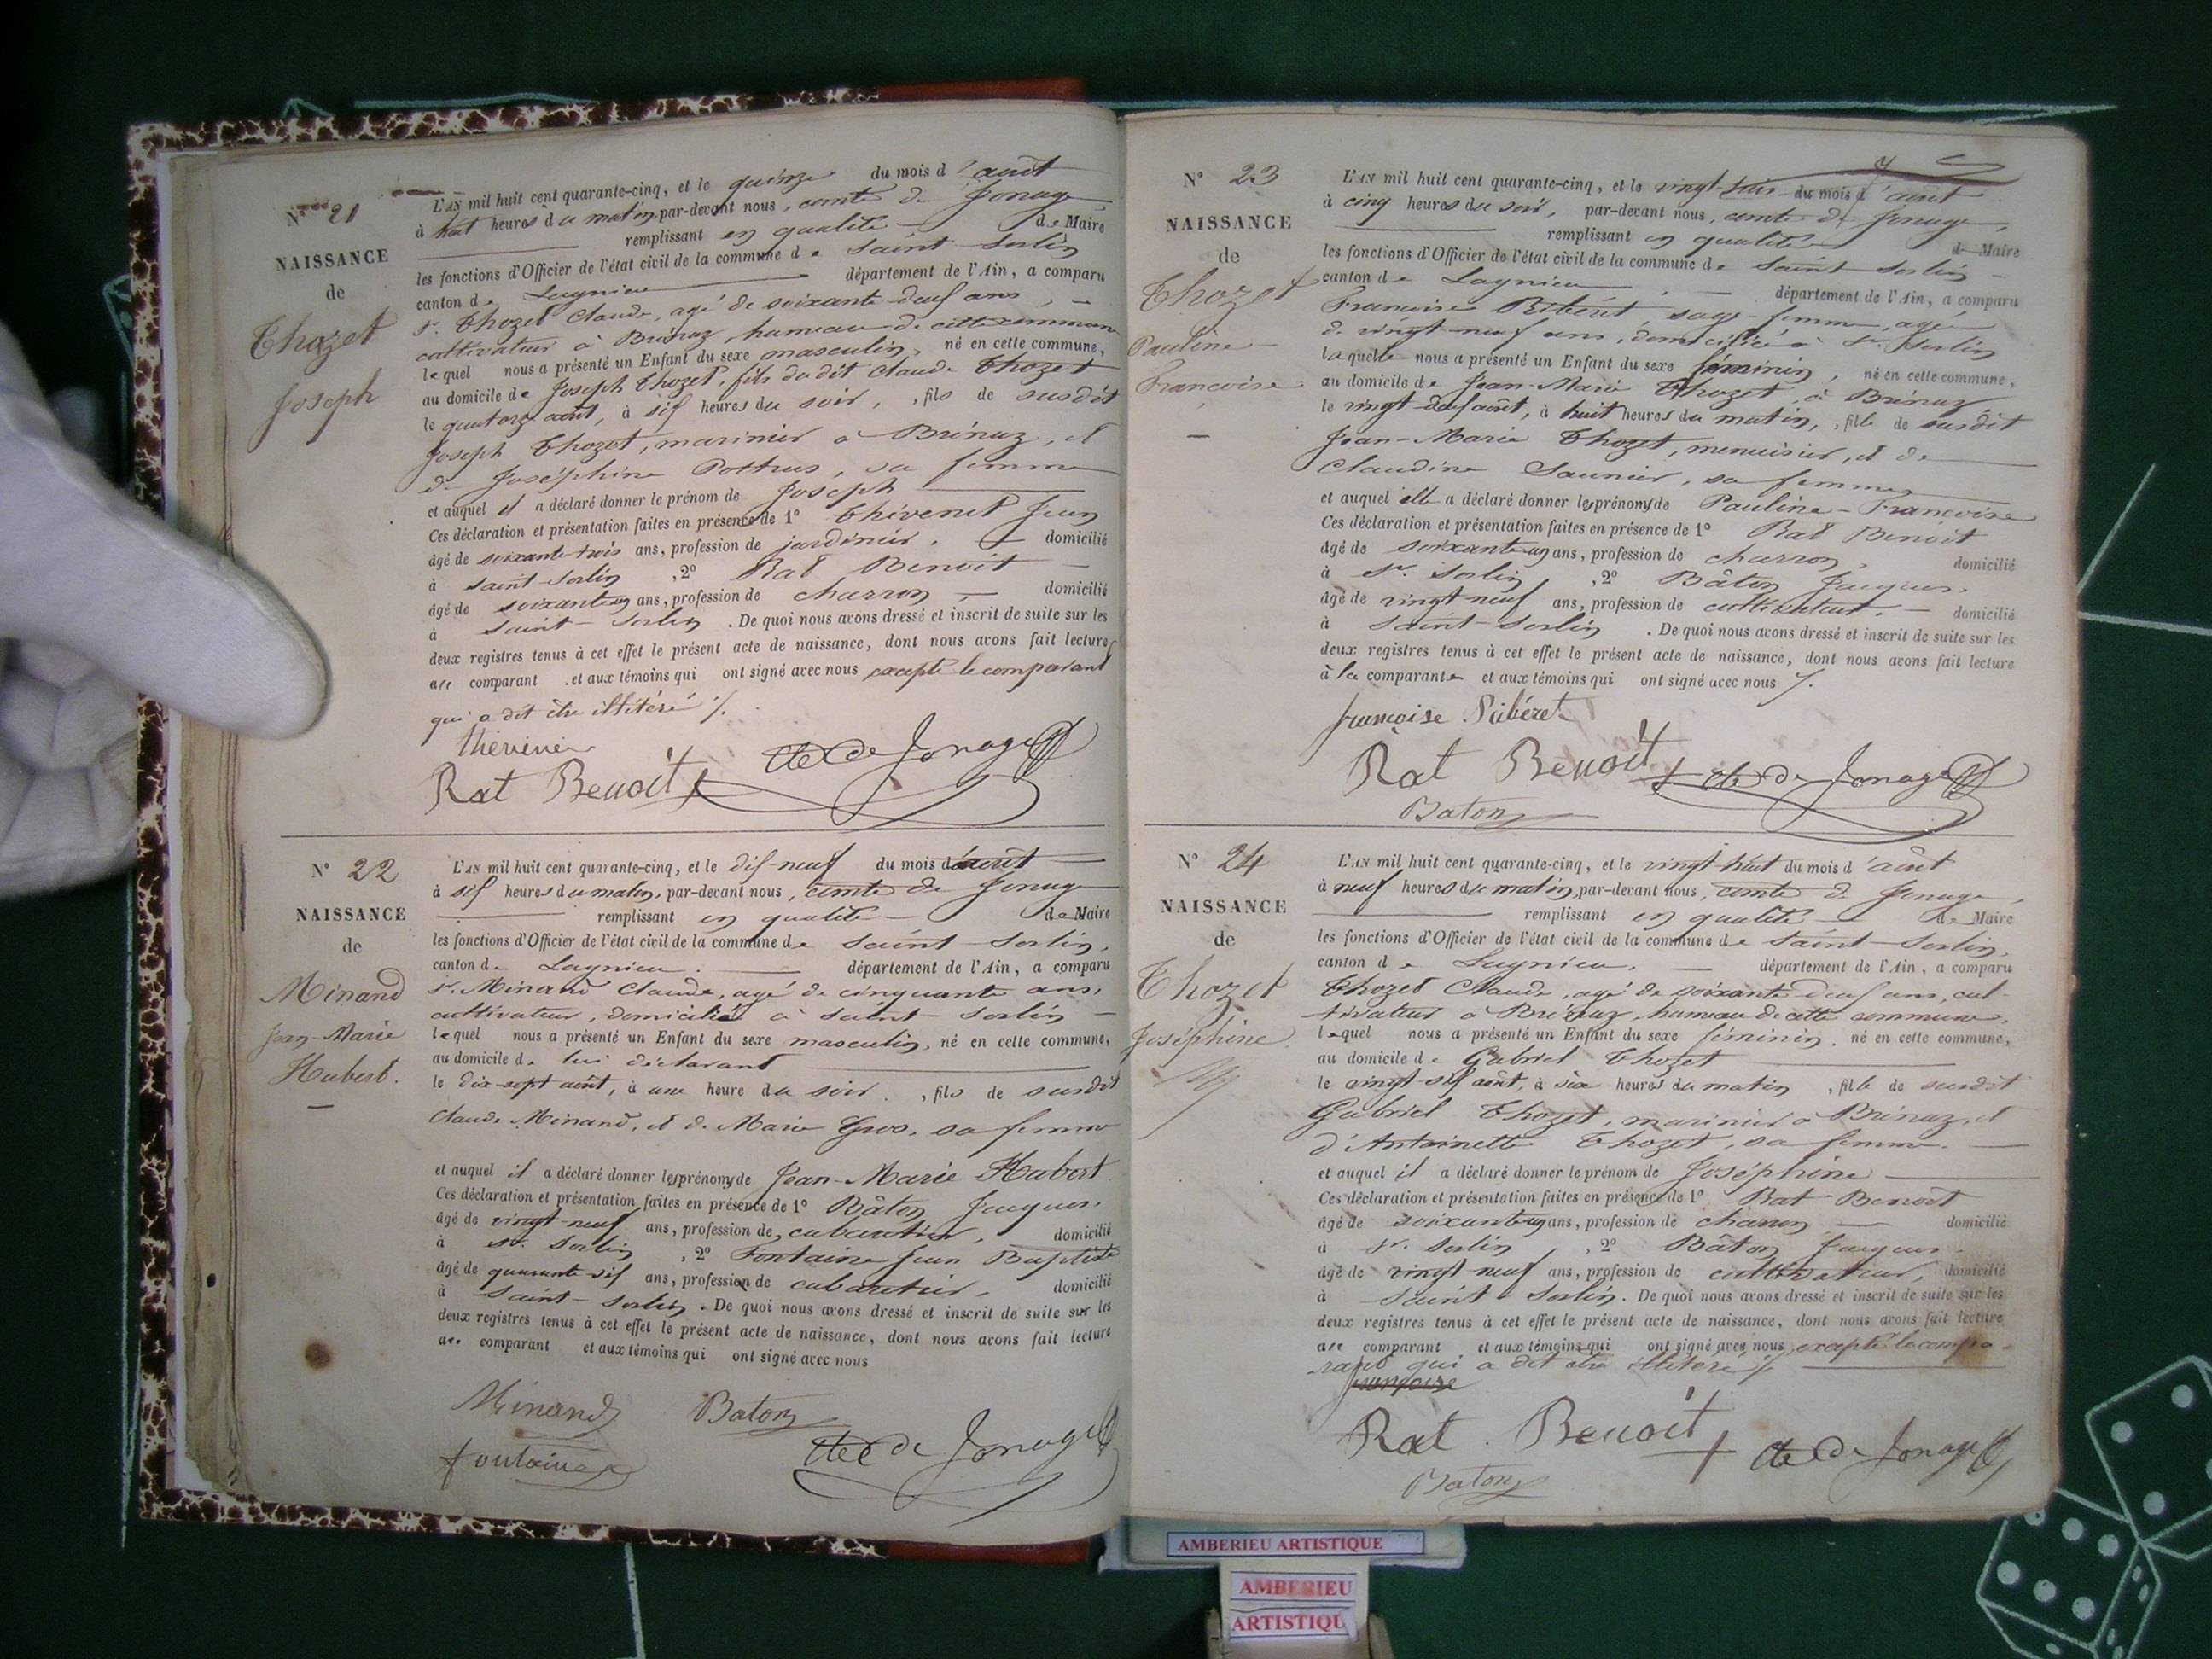 N° 21
NAISSANCE
de
Thozet
Joseph
L'AN mil huit cent quarante-cinq, et le quinze du mois d'août
à huit heures du matin, par-devant nous, comte de Jonage,
remplissant en qualité de Maire
les fonctions d'Officier de l'état civil de la commune de Saint-Sorlin
canton de Lagnieu département de l'Ain, a comparu
Sr. Thozet Claude, agé de soixante-deux ans,
cultivateur à Brénaz, hameau de cette commune
lequel nous a présenté un Enfant du sexe masculin, né en cette commune,
au domicile de Joseph Thozet, fils dudit Claude Thozet
le quatorze août, à six heures du soir, , fils de susdit
Joseph Thozet, marinier à Brénaz, et
de Joséphine Pottrus, sa femme
et auquel il a déclaré donner le prénom de Joseph
Ces déclaration et présentation faites en présence de 1° Thévenet Jean
âgé de soixante-trois ans, profession de jardinier, domicilié
à Saint-Sorlin , 2° Rat Benoit
âgé de soixante-un ans, profession de charron domicilié
à Saint-Sorlin . De quoi nous avons dressé et inscrit de suite sur les
deux registres tenus à cet effet le présent acte de naissance, dont nous avons fait lecture
au comparant et aux témoins qui ont signé avec nous excepté le comparant
qui a dit être illitéré /.
Rat Benoit
Cte de Jonage
N° 22
NAISSANCE
de
Minand
Jean-Marie
Hubert.
L'AN mil huit cent quarante-cinq, et le dix-neuf du mois d'août
à six heures du matin, par-devant nous, comte de Jonage
remplissant en qualité de Maire
les fonctions d'Officier de l'état civil de la commune de Saint-Sorlin,
canton de Lagnieu. département de l'Ain, a comparu
Sr. Minand Claude, agé de cinquante ans,
cultivateur, domicilié à Saint-Sorlin
lequel nous a présenté un Enfant du sexe masculin, né en cette commune,
au domicile de lui déclarant
le dix-sept août, à une heure du soir. , fils de susdit
Claude Minand, et de Marie Gros, sa femme
et auquel il a déclaré donner les prénoms de Jean-Marie Hubert
Ces déclaration et présentation faites en présence de 1° Bâton Jacques,
âgé de vingt-neuf ans, profession de cabaretier, domicilié
à St. Sorlin , 2° Fontaine Jean Baptiste
âgé de quarante-six ans, profession de cabaretier, domicilié
à Saint-Sorlin. De quoi nous avons dressé et inscrit de suite sur les
deux registres tenus à cet effet le présent acte de naissance, dont nous avons fait lecture
au comparant et aux témoins qui ont signé avec nous
Minand Baton
fontaine Cte de Jonage
N° 23
NAISSANCE
de
Thozet
Pauline
Françoise
L'AN mil huit cent quarante-cinq, et le vingt-trois du mois d'août
à cinq heures du soir, par-devant nous, comte de Jonage,
remplissant en qualité de Maire
les fonctions d'Officier de l'état civil de la commune de Saint-Sorlin
canton de Lagnieu, département de l'Ain, a comparu
Françoise Ribéret, sage-femme, agée
de vingt-neuf ans, domiciliée à St. Sorlin
laquelle nous a présenté un Enfant du sexe féminin, né en cette commune,
au domicile de Jean-Marie Thozet, à Brénaz
le vingt-deux août, à huit heures du matin, , fille de susdit
Jean-Marie Thozet, menuisier, et de
Claudine Saunier, sa femme
et auquel elle a déclaré donner les prénoms de Pauline-Françoise
Ces déclaration et présentation faites en présence de 1° Rat Benoit
âgé de soixante-un ans, profession de charron, domicilié
à St. Sorlin , 2° Bâton Jacques,
âgé de vingt-neuf ans, profession de cultivateur, domicilié
à Saint-Sorlin . De quoi nous avons dressé et inscrit de suite sur les
deux registres tenus à cet effet le présent acte de naissance, dont nous avons fait lecture
à la comparante et aux témoins qui ont signé avec nous /.
françoise Ribéret
Rat Benoit Cte de Jonage
Baton
N° 24
NAISSANCE
de
Thozet
Joséphine
L'AN mil huit cent quarante-cinq, et le vingt-huit du mois d'août
à neuf heures du matin, par-devant nous, comte de Jonage,
remplissant en qualité de Maire
les fonctions d'Officier de l'état civil de la commune de Saint-Sorlin,
canton de Lagnieu. département de l'Ain, a comparu
Thozet Claude, agé de soixante-deux ans, cul-
tivateur à Brénaz, hameau de cette commune,
lequel nous a présenté un Enfant du sexe féminin. né en cette commune,
au domicile de Gabriel Thozet
le vingt-six août, à six heures du matin , fille de susdit
Gabriel Thozet, marinier à Brénaz, et
d'Antoinette Thozet, sa femme.
et auquel il a déclaré donner le prénom de Joséphine
Ces déclaration et présentation faites en présence de 1° Rat Benoit
âgé de soixante-un ans, profession de charron domicilié
à St. Sorlin , 2° Bâton Jacques
âgé de vingt-neuf ans, profession de cultivateur, domicilié
à Saint-Sorlin. De quoi nous avons dressé et inscrit de suite sur les
deux registres tenus à cet effet le présent acte de naissance, dont nous avons fait lecture
au comparant et aux témoins qui ont signé avec nous excepté le compa-
rant qui a dit être illitéré /.
françoise
Rat Benoit Cte de Jonage
Baton
AMBERIEU ARTISTIQUE
AMBERIEU
ARTISTIQU